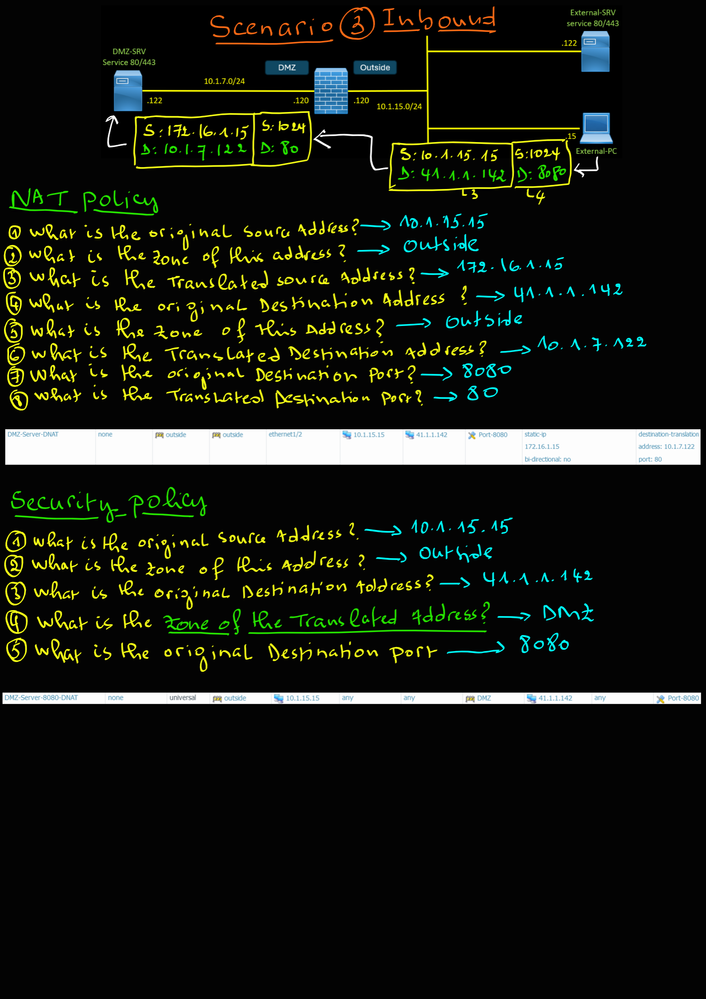 Scenario 3 Inbound
External-SRV
service 80/443
DMZ-SRV
Service 80/443
.122
DMZ
Outside
10.1.7.0/24
.122
.120
.120
10.1.15.0/24
.15
External-PC
S:172.16.1.15 S:1024
D:10.1.7.122 D:80
S:10.1.15.15 S:1024
D:41.1.1.142 D:8080
L3 L4
NAT Policy
1 What is the original Source Address? → 10.1.15.15
2 What is the zone of this address? → Outside
3 What is the Translated source Address? → 172.16.1.15
4 What is the original Destination Address ? → 41.1.1.142
5 What is the zone of this Address? → Outside
6 What is the Translated Destination Address? → 10.1.7.122
7 What is the original Destination Port? → 8080
8 What is the Translated Destination Port? → 80
DMZ-Server-DNAT none outside outside ethernet1/2 10.1.15.15 41.1.1.142 Port-8080 static-ip destination-translation
172.16.1.15 address: 10.1.7.122
bi-directional: no port: 80
Security Policy
1 What is the original Source Address? → 10.1.15.15
2 What is the zone of this Address? → Outside
3 What is the original Destination Address? → 41.1.1.142
4 What is the Zone of the Translated Address? → DMZ
5 What is the original Destination Port → 8080
DMZ-Server-8080-DNAT none universal outside 10.1.15.15 any any DMZ 41.1.1.142 any Port-8080